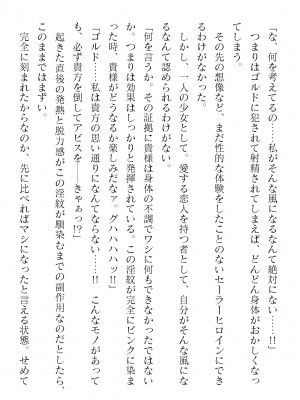 「な、何を考えてるの……私がそんな風になるなんて絶対にない……!!
つまりはゴルドに犯されて射精されてしまえば、どんどん身体がおかしくなっ
てしまう。
その先の想像など、まだ性的な体験をしたことのないセーラーヒロインにでき
るわけがなかった。
しかし、一人の少女として。愛する恋人を持つ者として、自分がそんな風にな
るなんて認められるわけがない。
「何を言うか。その証拠に貴様は身体の不調でワシに何もできなかったではない
か。つまりは効果はしっかりと発揮されている。この淫紋が完全にピンクに染ま
った時、貴様がどうなるか楽しみだなァ。グハハハハッ!!」
「ゴルド……私は貴方の思い通りになんてならない……!! こんなモノがあって
も、必ず貴方を倒してアビスを――きゃぁっ!?」
起きた直後の発熱と脱力感がこの淫紋が馴染むまでの副作用なのだとしたら、
このままではまずい。
完全に刻まれたからなのか、先に比べればマシになったと言える状態。せめて